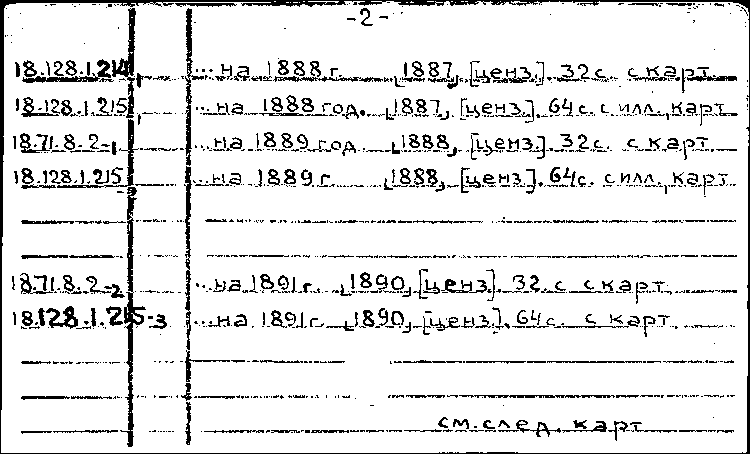 -2-
18.128.1.214 ... на 1888 г. 1887, [ценз.]. 32 с. с карт
18.128.1.215 ... на 1888 год. 1887, [ценз.]. 64 с. с илл., карт
18.71.8.2-1 ... на 1889 год 1888, [ценз.]. 32 с. с карт
18.128.1.215-2 ... на 1889 г. 1888, [ценз.]. 64 с. с илл., карт
18.71.8.2-2 ... на 1891 г. 1890, [ценз]. 32. с с карт
18.128.1.215-3 ... на 1891 г. 1890, [ценз.]. 64 с. с карт
см. след. карт